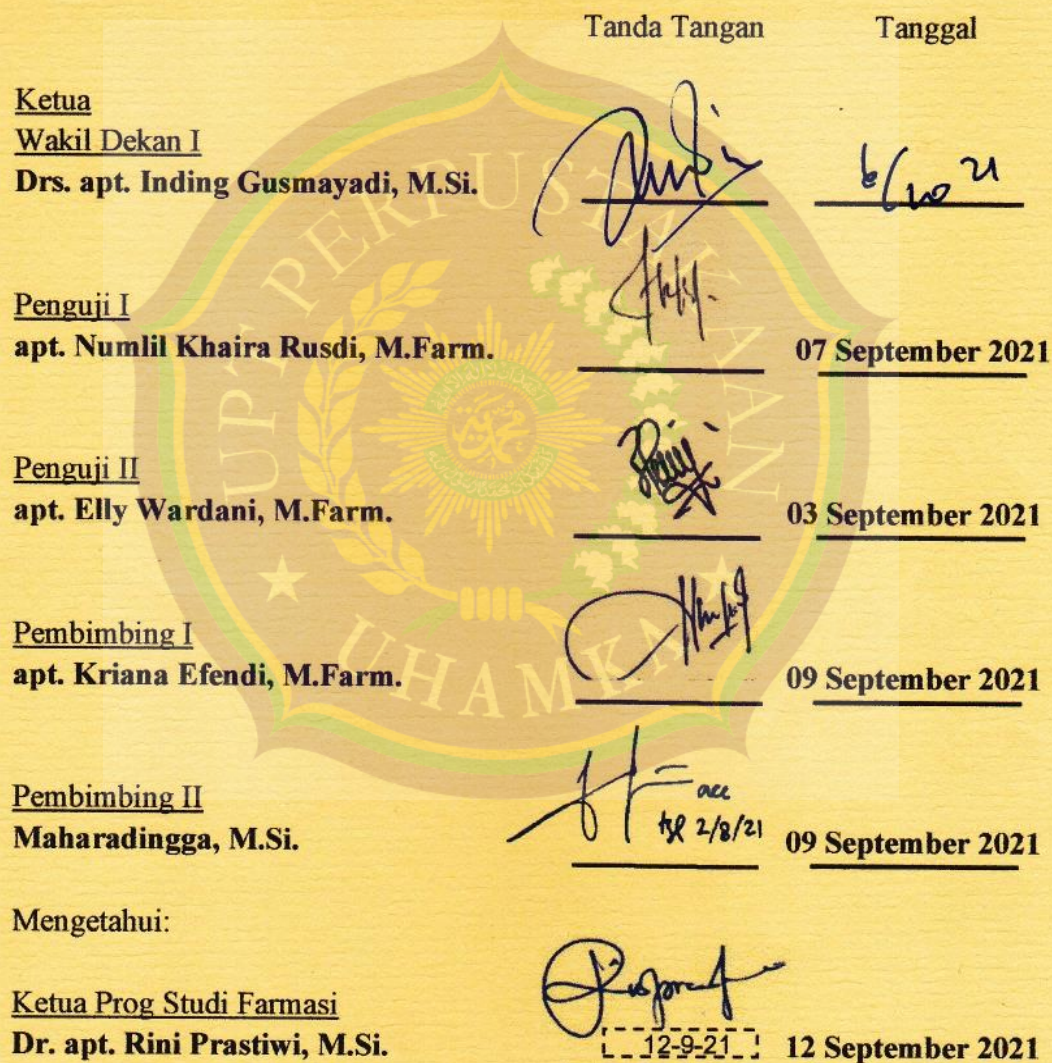 Tanda Tangan Tanggal
Ketua
Wakil Dekan I
Drs. apt. Inding Gusmayadi, M.Si.
6/10 21
Penguji I
apt. Numlil Khaira Rusdi, M.Farm.
07 September 2021
Penguji II
apt. Elly Wardani, M.Farm.
03 September 2021
Pembimbing I
apt. Kriana Efendi, M.Farm.
09 September 2021
Pembimbing II
acc
tgl 2/8/21
Maharadingga, M.Si.
09 September 2021
Mengetahui:
Ketua Prog Studi Farmasi
Dr. apt. Rini Prastiwi, M.Si.
12-9-21
12 September 2021
UPT PERPUSTAKAAN
UHAMKA